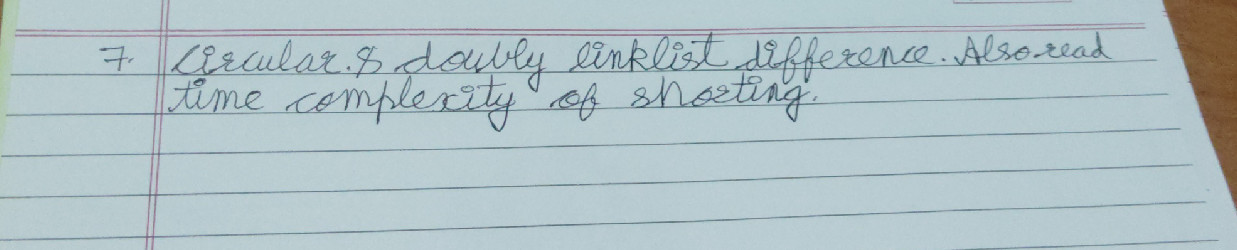 7. Circular. & doubly linklist difference. Also read
time complexity of shorting.